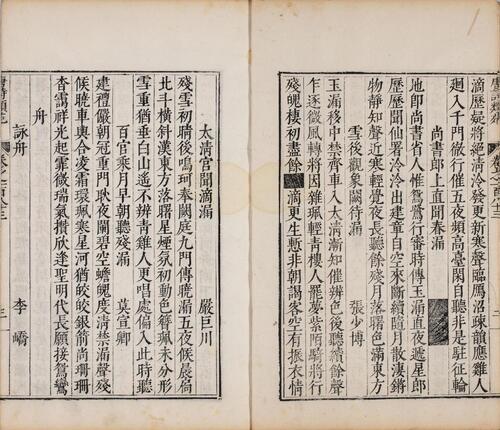 滴歷疑將絕清泠發更新寒聲臨鴈沼疎韻應雞人
廻入千門徹行催五夜頻高臺閑自聽非是駐征輪
尚書郎上直聞春漏
地即尚書省人惟鴛鷺行審時傳玉漏直夜遞星郎
歷歷聞仙署泠泠出建章自空來斷續隨月散淒鏘
物靜知聲近寒輕覺夜長聽餘殘月落曙色滿東方
雪後觀象闕待漏 張少博
玉漏移中禁齊車入太清漸知催辨色後聽續餘聲
乍逐微風轉將因雜珮輕青樓人罷夢紫陌騎將行
殘魄棲初盡餘滴更生慙非朝謁客空有振衣情
太清宮聞滴漏 嚴巨川
殘雪初晴後鳴珂奉闕庭九門傳曉漏五夜候晨扃
北斗橫斜漢東方落曙星煙氛初動色簪珮未分形
雪重猶垂白山遙不辨青雞人更唱處偏入此時聽
百官乘月早朝聽殘漏 莫宣卿
建禮儼朝冠重門耿夜闌碧空蟾魄度清禁漏聲殘
候曉車輿合凌霜環珮寒星河猶皎皎銀箭尚珊珊
杳靄祥光起霏微瑞氣攢欣逢聖明代長願接鴛鸞
舟
詠舟 李嶠